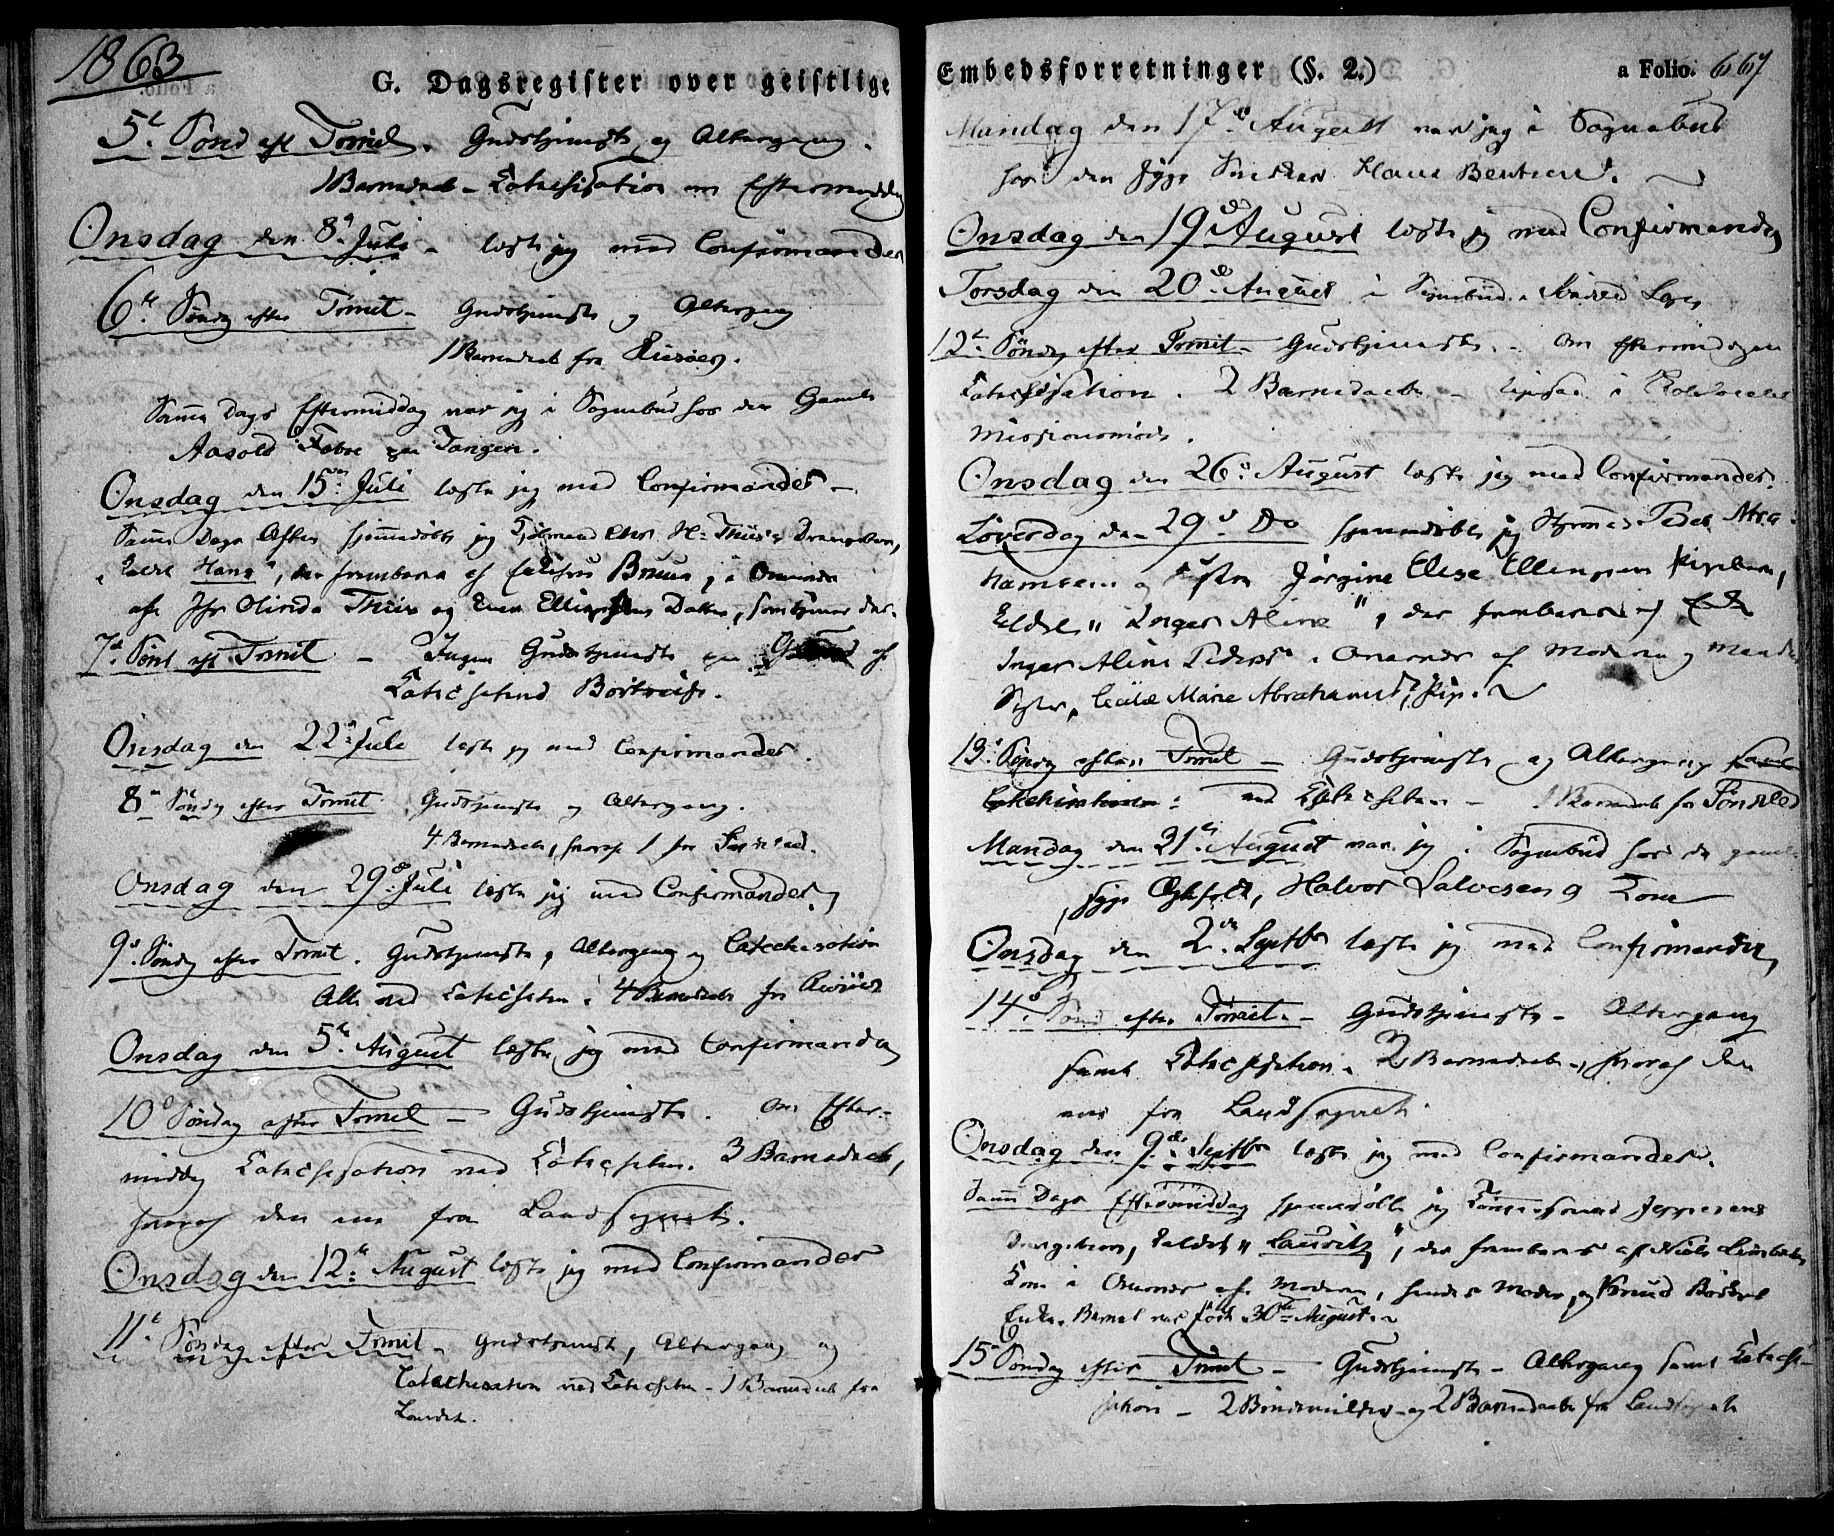 1863
G. Dagsregister over geistlige
5te Sönd eft Trinit. Gudstjeneste og Altergang.
1 Barnedaab - Catechisation om Eftermiddag
Onsdag den 8de Juli - læste jeg med Confirmander
6te Söndag efter Trinit - Gudstjeneste og Altergang
1 Barnedaab fra Riisöer.
Samme Dags Eftermiddag var jeg i Sognebud hos den Gamle
Aasold paa Tangen.
Onsdag den 15de Juli læste jeg med Confirmander -
Samme Dags Aften hjemmedöbte jeg Chr. H. Thiis's Drengebarn,
kaldet "Hans", der frembares af Bruun, i Overvær
af Jfr Olinda Thiis og Even Ellingsens Datter, som tjener der.
7de Sönd eft Trinit - Ingen Gudstjeneste paa af
Catechetens Bortreise.
Onsdag den 22de Juli læste jeg med Confirmander.
8de Söndag efter Trinit Gudstjeneste og Altergang.
4 Barnedaab, hvoraf 1 fra
Onsdag den 29de Juli læste jeg med Confirmander
9de Söndag efter Trinit. Gudstjeneste, Altergang og Catechisation
Alt ved Catecheten. 4 Barnedaab fra Riisöer
Onsdag den 5te August læste jeg med Confirmander
10de Söndag efter Trinit - Gudstjeneste. Om Efter-
middag Catechisation ved Catecheten. 3 Barnedaab,
hvoraf den ene fra Landsognet.
Onsdag den 12te August læste jeg med Confirmander
11te Söndag efter Trinit - Gudstjeneste, Altergang og
Catechisation ved Catecheten - 1 Barnedaab fra
Landet.
Embedsforretninger (§. 2.)
a Folio. 667
Mandag den 17de August var jeg i Sognebud
hos den syge Hans Bentsen.
Onsdag den 19de August læste jeg med Confirmander
Torsdag den 20de August i Sognebud.
12te Söndag efter Trinit - Gudstjeneste. - Om Eftermiddagen
Catechisation. 2 Barnedaab - i
Missionsmöde.
Onsdag den 26de August læste jeg med Confirmander.
Löverdag den 29de Do hjemmedöbte jeg Styrmand Abra-
hamsen og Hustru Jörgine Elise Ellingsens Pigebarn,
kaldet "Inger Aline", der frembares af
Inger Aline i Overvær af Moderen og Mandens
Söster, Cecilie Marie Abrahams.
13de Söndag efter Trinit - Gudstjeneste og Altergang samt
Catechisation: ved Catecheten - 1 Barnedaab fra Söndeled
Mandag den 31te August var jeg i Sognebud hos de gamle
syge Halvor Salvesen og Kone
Onsdag den 2den Septbr læste jeg med Confirmander
14de Sönd efter Trinit. - Gudstjeneste - Altergang
samt Catechisation. 2 Barnedaab, hvoraf den
ene fra Landsognet.
Onsdag den 9de Septbr læste jeg med Confirmander.
Samme Dags Eftermiddag hjemmedöbte jeg Jeppesens
Drengebarn, kaldet "Lauritz", der frembares af Niels
Kone i Overvær af Moderen, hendes Moder, og Knud
Enke. Barnet var född 30te August.
15de Söndag efter Trinit - Gudstjeneste - Altergang samt Catechi-
sation - 2 og 2 Barnedaab fra Landsognet